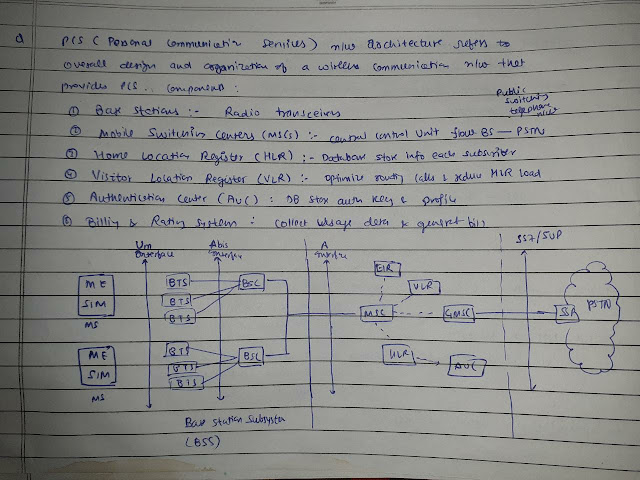 PCS (Personal Communication Services) n/w architecture refers to
overall design and organization of a wireless communication n/w that
provides PCS .. components :
Public
switching
telephone
n/w
① Base stations :- Radio transceivers
② Mobile Switching Centers (MSCs) :- central control unit from BS — PSTN
③ Home Location Register (HLR) :- Database store info each subscriber
④ Visitor Location Register (VLR) :- Optimize routing calls & reduce HLR load
⑤ Authentication Center (AUC) : DB store auth key & profile
⑥ Billing & Rating System : collect usage data & generate bill
Um
Interface
Abis
Interface
A
Interface
SS7/SUP
ME
SIM
MS
BTS
BTS
BTS
BSC
EIR
VLR
MSC
GMSC
SSP
PSTN
ME
SIM
MS
BTS
BTS
BTS
BSC
HLR
AUC
Base station subsystem
(BSS)